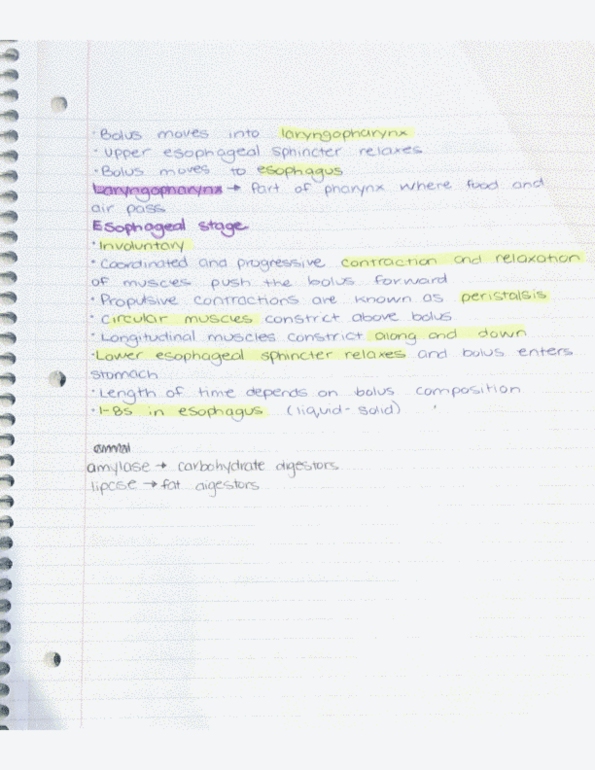 · Bolus moves into laryngopharynx
· Upper esophageal sphincter relaxes
· Bolus moves to esophagus
Laryngopharynx → Part of pharynx where food and
air pass
Esophageal stage
· Involuntary
· Coordinated and progressive contraction and relaxation
of muscles push the bolus forward
· Propulsive contractions are known as peristalsis
· Circular muscles constrict above bolus
· Longitudinal muscles constrict along and down
· Lower esophageal sphincter relaxes and bolus enters
stomach
· Length of time depends on bolus composition
· 1-8s in esophagus (liquid-solid)
amylase → carbohydrate digestors
lipase → fat digestors